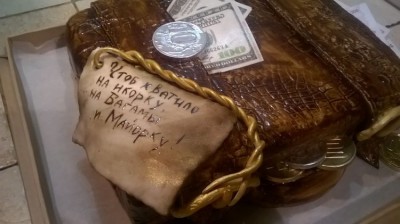 Чтоб хватило
на икорку,
на Багамы
и Майорку!